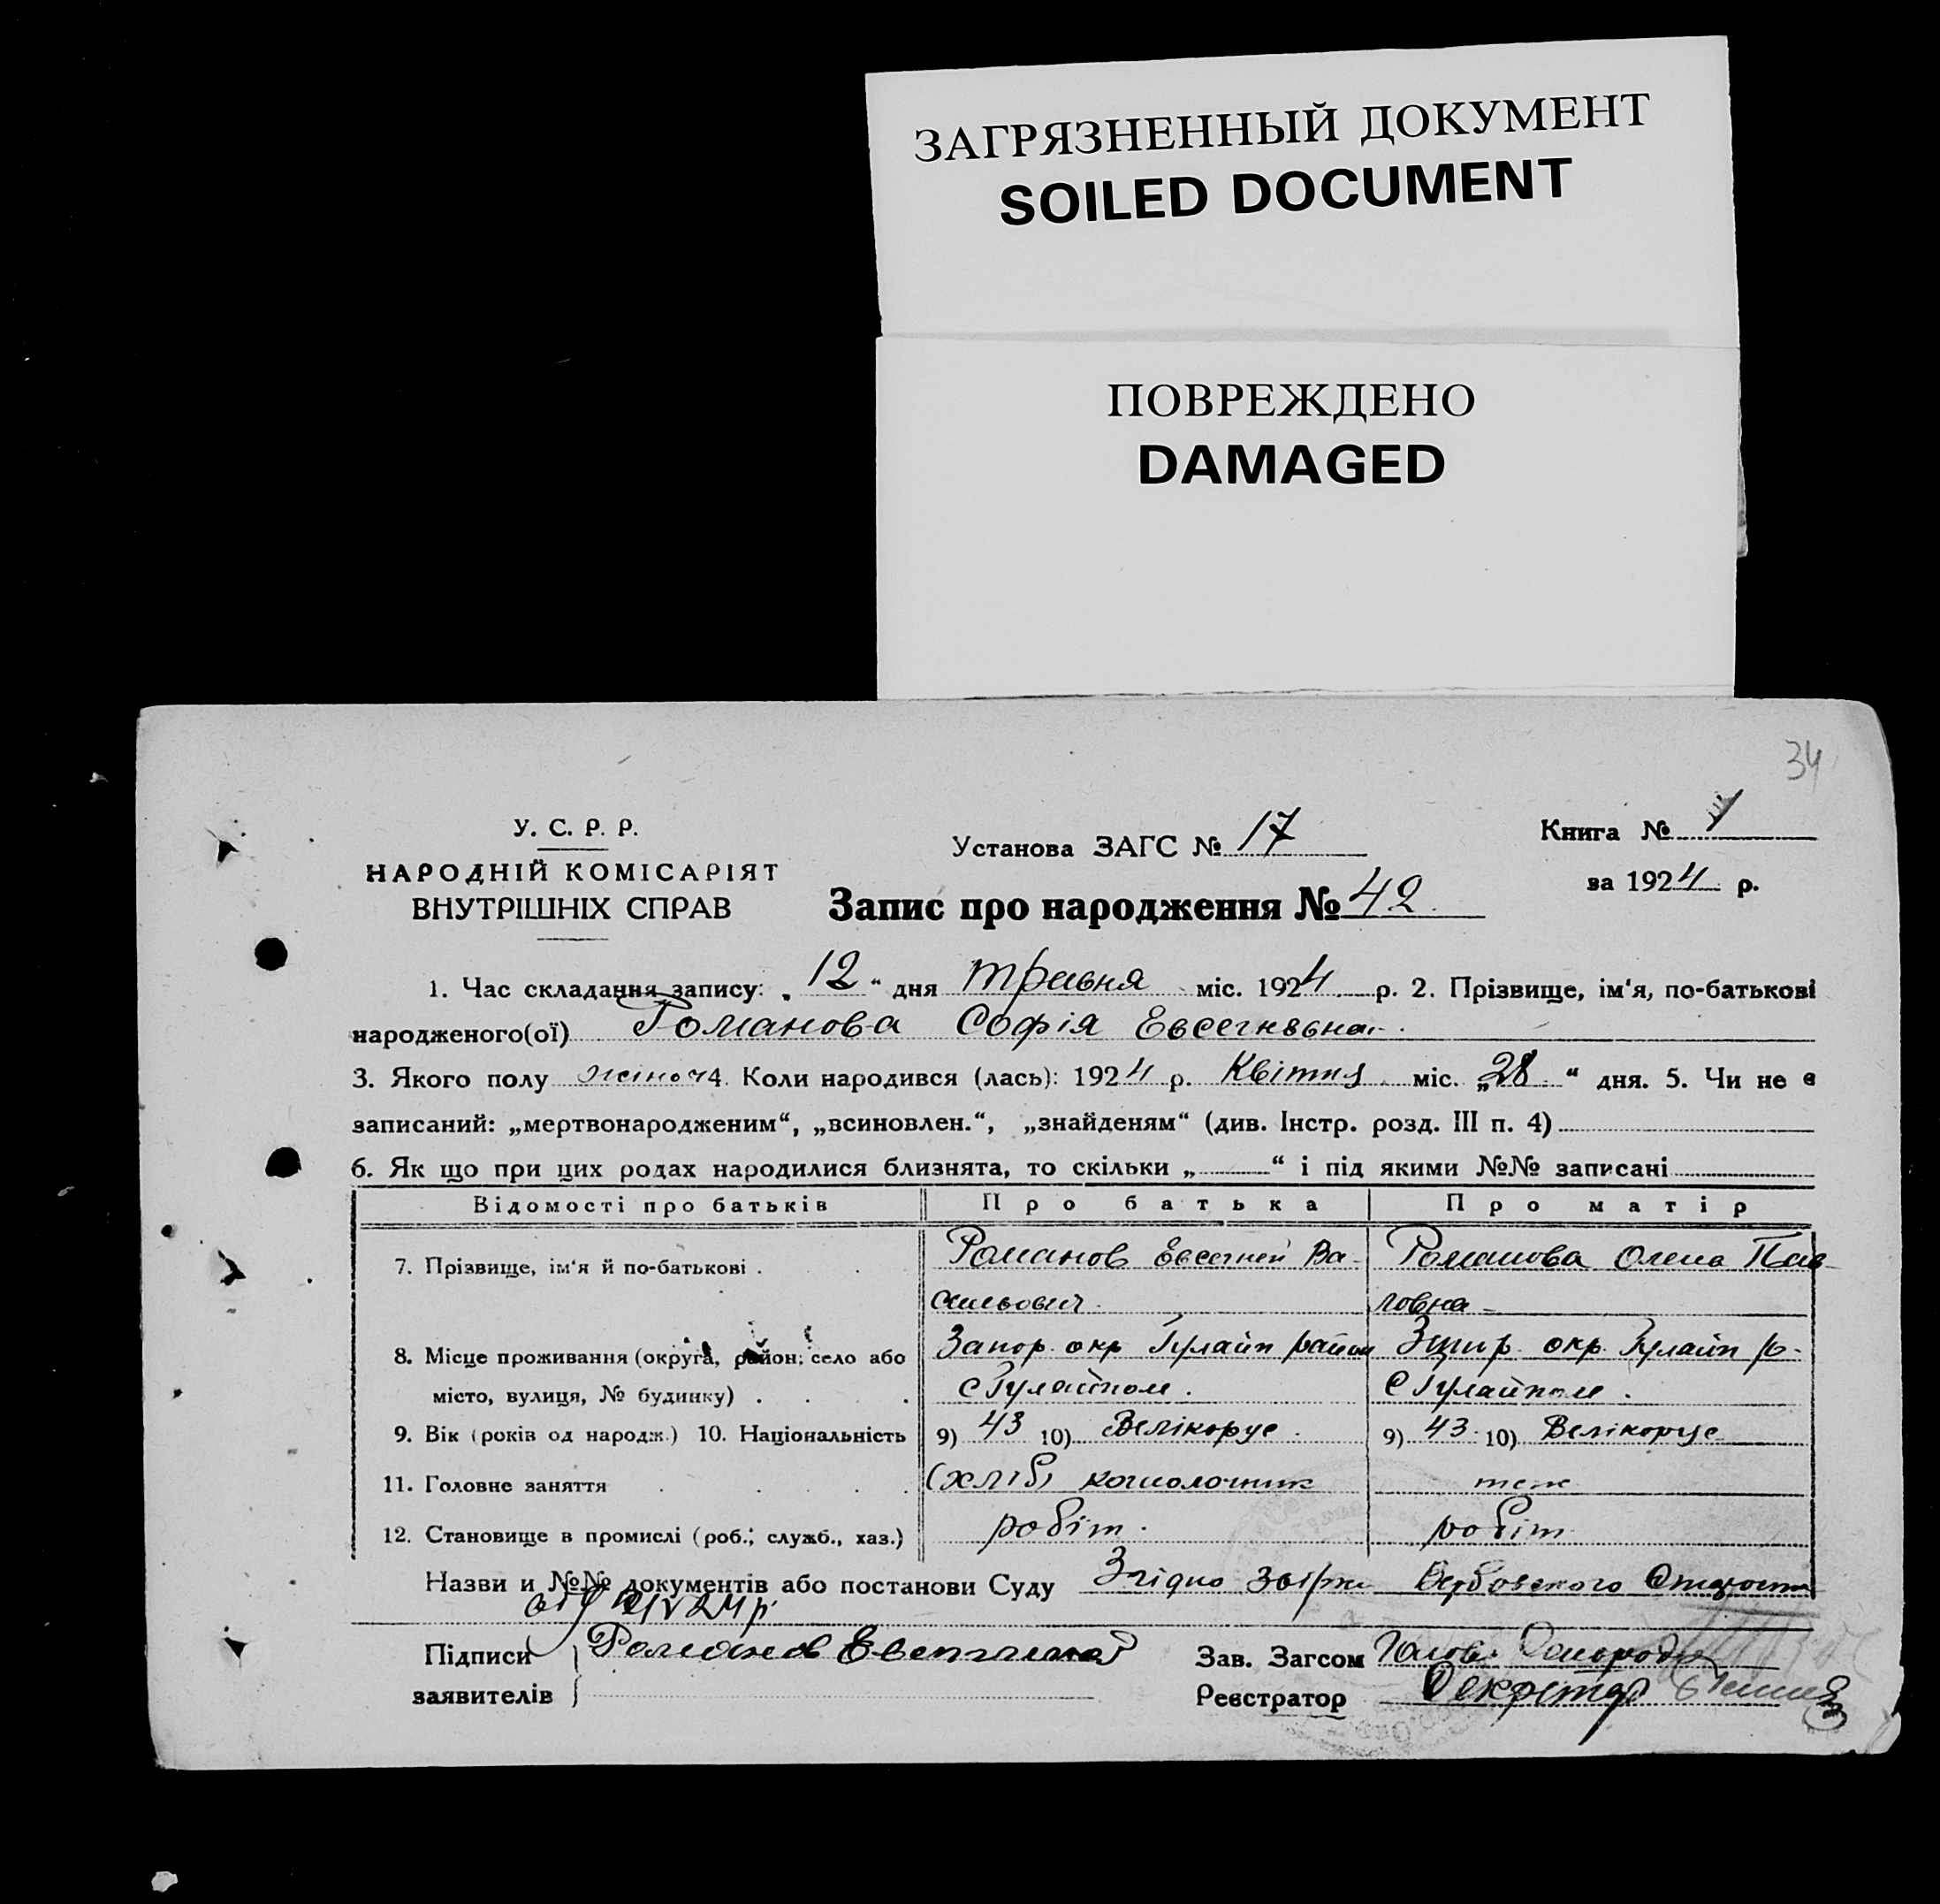 ЗАГРЯЗНЕННЫЙ ДОКУМЕНТ
SOILED DOCUMENT
ПОВРЕЖДЕНО
DAMAGED
34
У. С. Р. Р.
НАРОДНІЙ КОМІСАРІЯТ
ВНУТРІШНІХ СПРАВ
Установа ЗАГС № 17
Книга №
за 1924 р.
Запис про народження № 42
1. Час складання запису: „12“ дня травня міс. 1924 р. 2. Прізвище, ім‘я, по-батькові
народженого(ої) Романова Софія Евсегневна
3. Якого полу жіноч 4. Коли народився (лась): 1924 р. Квітня міс. „28“ дня. 5. Чи не є
записаний: „мертвонародженим“, „всиновлен.“, „знайденям“ (див. Інстр. розд. III п. 4)
6. Як що при цих родах народилися близнята, то скільки „ “ і під якими №№ записані
Відомості про батьків Про батька Про матір
7. Прізвище, ім‘я й по-батькові . Романов Евсегней Ва- Романова Олена Пав-
сильович ловна
8. Місце проживання (округа, район, село або Запор. окр Гуляйп район Запор. окр. Гуляйп р-
місто, вулиця, № будинку) . с Гуляйполе. с Гуляйполе.
9. Вік (років од народж.) 10. Національність 9) 43 10) Велікорус 9) 43 10) Велікорус
11. Головне заняття (хліб) теж
12. Становище в промислі (роб.; служб., хаз.) робіт. робіт
Назви и №№ документів або постанови Суду Згідно Вербовского
від
Підписи Романов
заявителів
Зав. Загсом Голова
Реєстратор Секретар